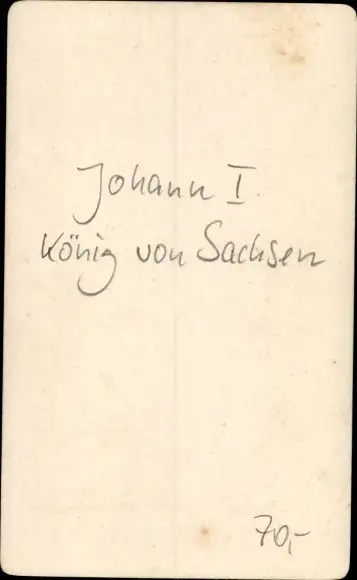 Johann I.
König von Sachsen
70,-